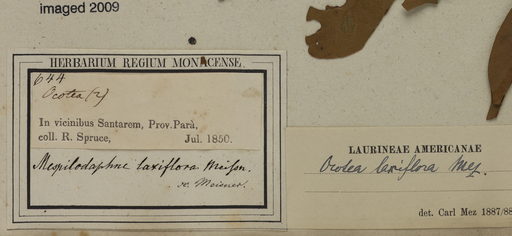 imaged 2009
HERBARIUM REGIUM MONACENSE.
644
Ocotea (2)
In vicinibus Santarem, Prov. Parà,
coll. R. Spruce, Jul. 1850.
Mespilodaphne laxiflora Meissn.
Meissner.
LAURINEAE AMERICANAE
Ocotea laxiflora Mez.
det. Carl Mez 1887/88